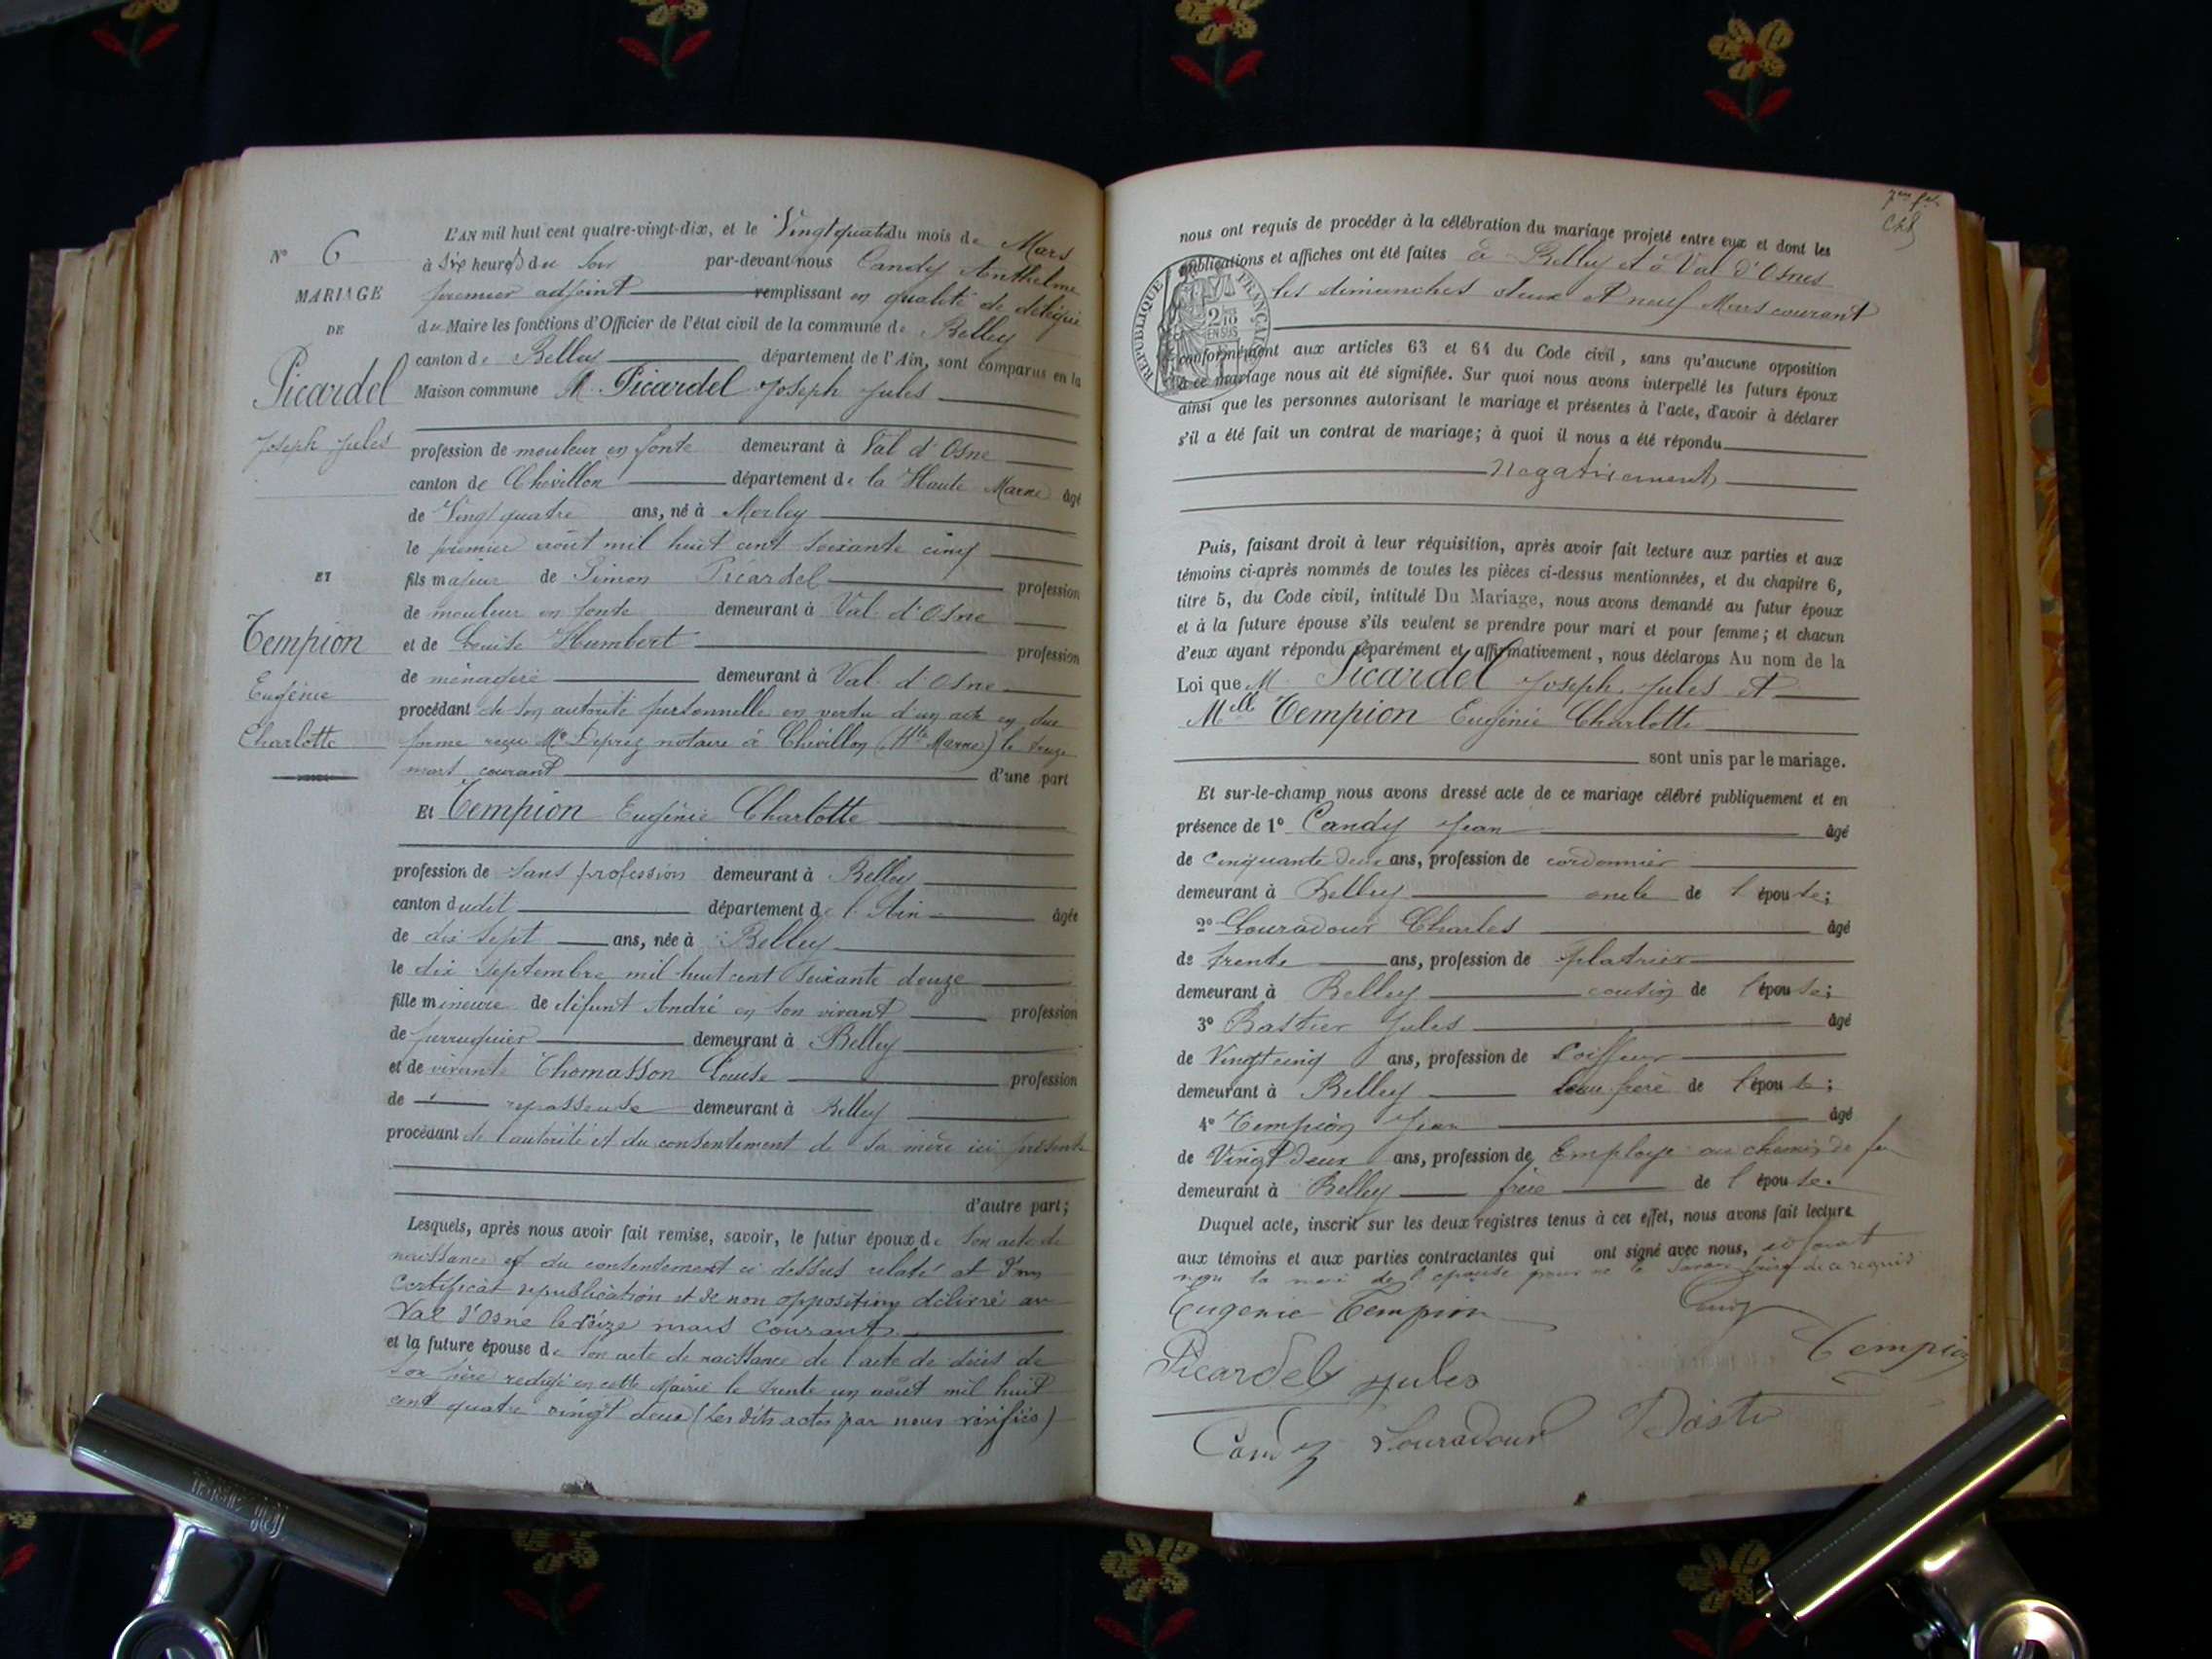 N° 6
MARIAGE
DE
Picardel
Joseph Jules
ET
Tempion
Eugénie
Charlotte
L'AN mil huit cent quatre-vingt-dix, et le Vingt quatre du mois de Mars
à six heures du soir par-devant nous Candy Anthelme
premier adjoint remplissant en qualité de délégué
du Maire les fonctions d'Officier de l'état civil de la commune de Belley
canton de Belley département de l'Ain, sont comparus en la
Maison commune M. Picardel Joseph Jules
profession de mouleur en fonte demeurant à Val d'Osne
canton de Chevillon département de la Haute Marne âgé
de Vingt quatre ans, né à Morley
le premier août mil huit cent soixante cinq
fils majeur de Simon Picardel profession
de mouleur en fonte demeurant à Val d'Osne
et de Louise Humbert profession
de ménagère demeurant à Val d'Osne
procédant de son autorité personnelle en vertu d'un acte en due
forme reçu Me Deprez notaire à Chevillon (Hte Marne) le treize
mars courant d'une part
Et Tempion Eugénie Charlotte
profession de sans profession demeurant à Belley
canton dudit département de l'Ain âgée
de dix sept ans, née à Belley
le dix septembre mil huit cent soixante douze
fille mineure de défunt André en son vivant profession
de perruquier demeurant à Belley
et de vivante Thomasson Louise profession
de repasseuse demeurant à Belley
procédant de l'autorité et du consentement de sa mère ici présente
d'autre part;
Lesquels, après nous avoir fait remise, savoir, le futur époux de son acte de
naissance et du consentement ci dessus relaté et d'un
Certificat de publication et de non opposition délivré au
Val d'Osne le seize mars courant
et la future épouse de son acte de naissance de l'acte de décès de
son père redigé en cette Mairie le trente un août mil huit
cent quatre vingt deux (Les dits actes par nous vérifiés)
nous ont requis de procéder à la célébration du mariage projeté entre eux et dont les
publications et affiches ont été faites à Belley et à Val d'Osnes
les dimanches deux et neuf Mars courant
RÉPUBLIQUE FRANÇAISE
2/10
EN SUS
conformément aux articles 63 et 64 du Code civil, sans qu'aucune opposition
à ce mariage nous ait été signifiée. Sur quoi nous avons interpellé les futurs époux
ainsi que les personnes autorisant le mariage et présentes à l'acte, d'avoir à déclarer
s'il a été fait un contrat de mariage; à quoi il nous a été répondu
Negativement
Puis, faisant droit à leur réquisition, après avoir fait lecture aux parties et aux
témoins ci-après nommés de toutes les pièces ci-dessus mentionnées, et du chapitre 6,
titre 5, du Code civil, intitulé Du Mariage, nous avons demandé au futur époux
et à la future épouse s'ils veulent se prendre pour mari et pour femme; et chacun
d'eux ayant répondu séparément et affirmativement, nous déclarons Au nom de la
Loi que M. Picardel Joseph Jules et
Melle Tempion Eugénie Charlotte
sont unis par le mariage.
Et sur-le-champ nous avons dressé acte de ce mariage célébré publiquement et en
présence de 1° Candy Jean âgé
de cinquante deux ans, profession de cordonnier
demeurant à Belley oncle de l'épouse;
2° Louradour Charles âgé
de trente ans, profession de platrier
demeurant à Belley cousin de l'épouse;
3° Bastier Jules âgé
de Vingt cinq ans, profession de Coiffeur
demeurant à Belley beau frère de l'épouse;
4° Tempion Jean âgé
de Vingt deux ans, profession de Employé au chemin de fer
demeurant à Belley frère de l'épouse.
Duquel acte, inscrit sur les deux registres tenus à cet effet, nous avons fait lecture
aux témoins et aux parties contractantes qui ont signé avec nous,
non la mère de l'épouse pour ne le savoir faire de ce requise
Eugenie Tempion
Tempion
Picardel Jules
Candy Louradour